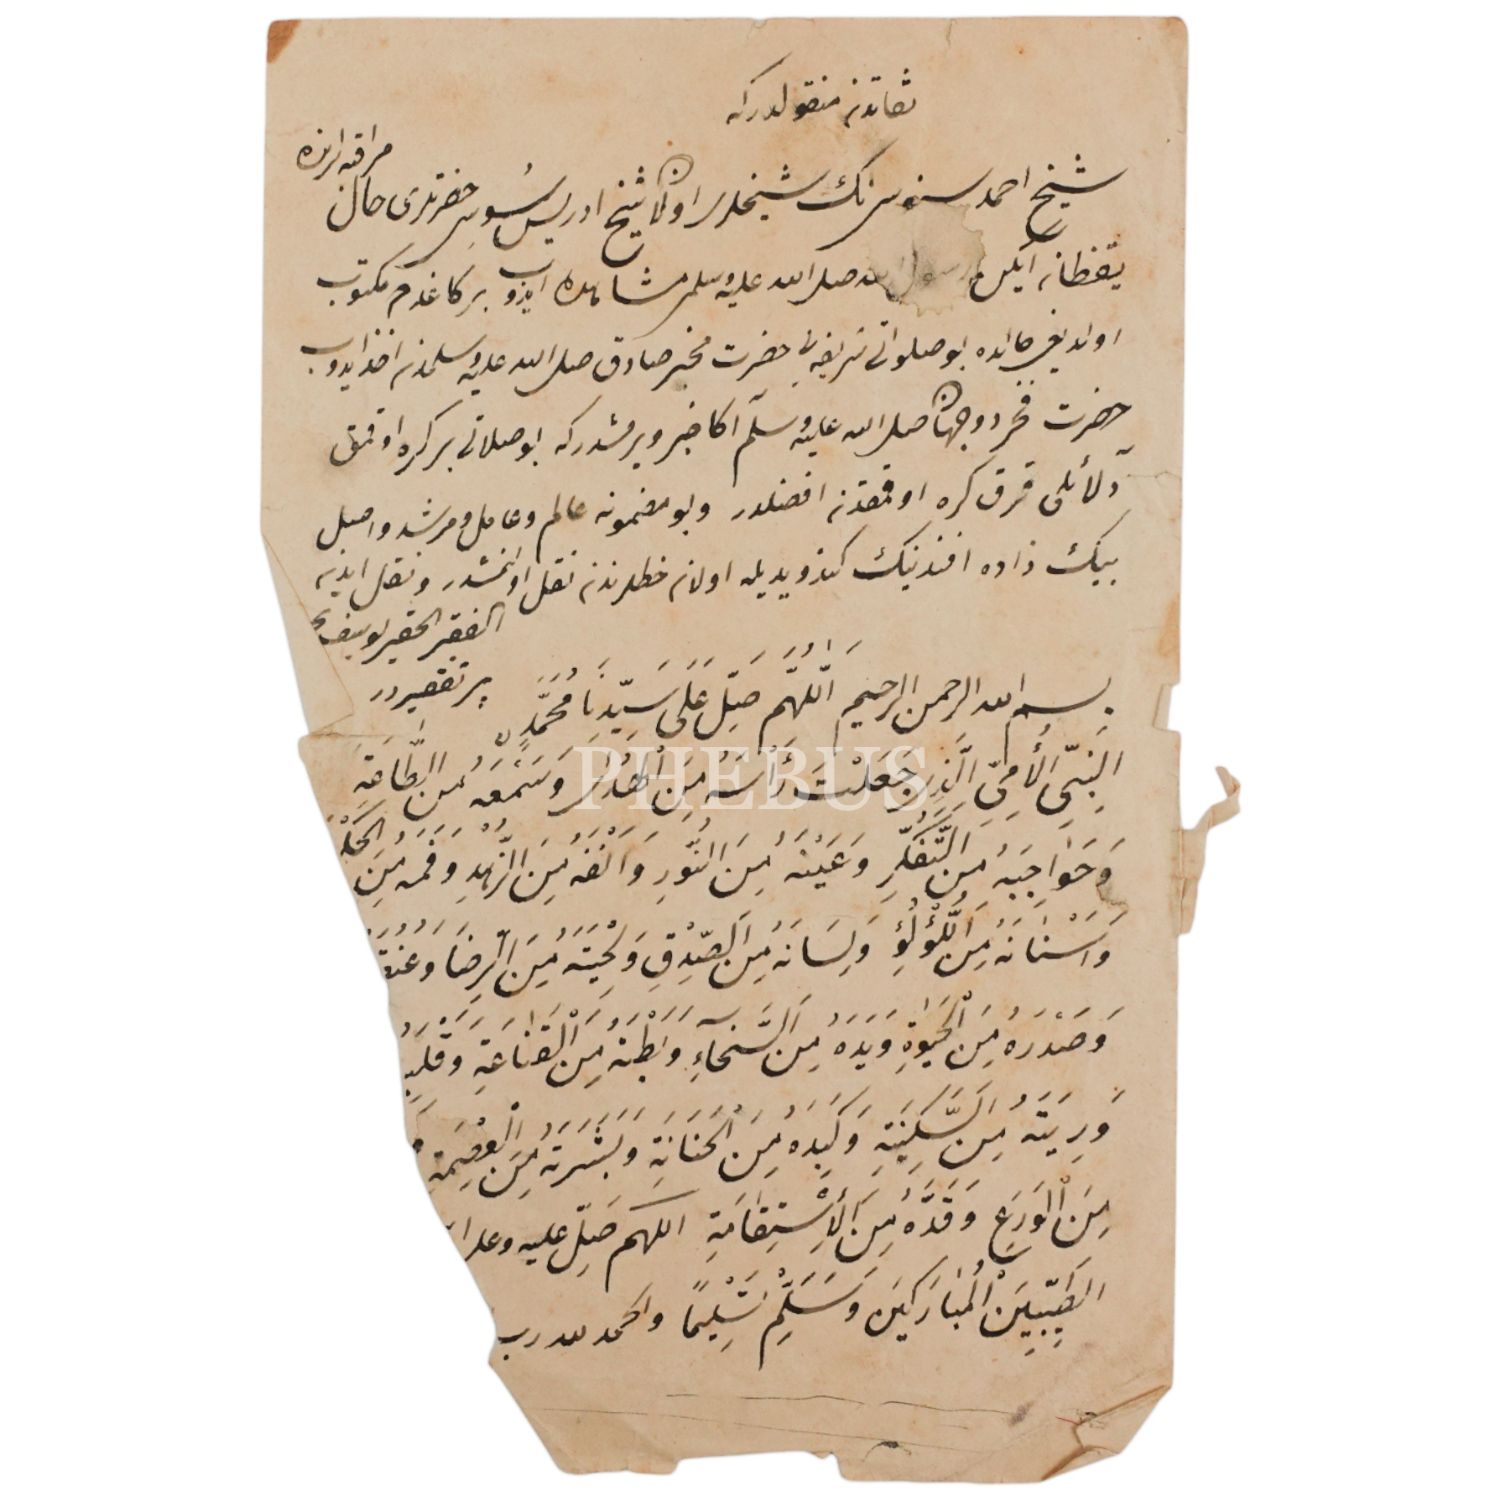 ثقاتدن منقولدركه
شيخ احمد سنوسىنك شيخلرى اولان شيخ ادريس سوسى حضرتلرى حال
يقظان ايكن رسول الله صلى الله عليه وسلمى مشاهده ايدوب بر كاغدم مكتوب
اولديغى حالده بو صلواتى شريفه‌يى حضرت مخبر صادق صلى الله عليه وسلمدن اخذ ايدوب
حضرت فخر دوجهان صلى الله عليه وسلم اكا خبر ويرمشدركه بو صلاتى بر كره اوقمق
دلائلى قرق كره اوقمقدن افضلدر وبو مضمونه عالم وعامل ومرشد واصل
بيك زاده افندينك كندو يديله اولان خطلرندن نقل اولنمشدر ونقل ايدن
الفقير الحقير يوسف
پر تقصيردر
بسم الله الرحمن الرحيم اَللّٰهُمَّ صَلِّ عَلَى سَيِّدِنَا مُحَمَّدٍ
اَلنَّبِيِّ الْأُمِّيِّ الَّذِي جَعَلْتَ رَأْسَهُ مِنَ الْهُدَى وَسَمْعَهُ مِنَ الطَّاعَةِ
وَحَوَاجِبَهُ مِنَ التَّفَكُّرِ وَعَيْنَهُ مِنَ النُّورِ وَاَنْفَهُ مِنَ الزُّهْدِ وَفَمَهُ مِنَ
وَاَسْنَانَهُ مِنَ اللُّؤْلُؤِ وَلِسَانَهُ مِنَ الصِّدْقِ وَلِحْيَتَهُ مِنَ الرِّضَا وَعُنُقَهُ
وَصَدْرَهُ مِنَ الْحَيٰوةِ وَيَدَهُ مِنَ السَّخَآءِ وَبَطْنَهُ مِنَ الْقَنَاعَةِ وَقَلْبَهُ
وَرِيَتَهُ مِنَ السَّكِينَةِ وَكَبِدَهُ مِنَ الْحَنَانَةِ وَبَشَرَتَهُ مِنَ الْعِصْمَةِ
مِنَ الْوَرَعِ وَقَدَّهُ مِنَ الْاِسْتِقَامَةِ اللهم صَلِّ عليه وعلى
الطَّيِّبِينَ الْمُبَارَكِينَ وَسَلِّمْ تَسْلِيمًا والحمد لله رب
PHEBUS